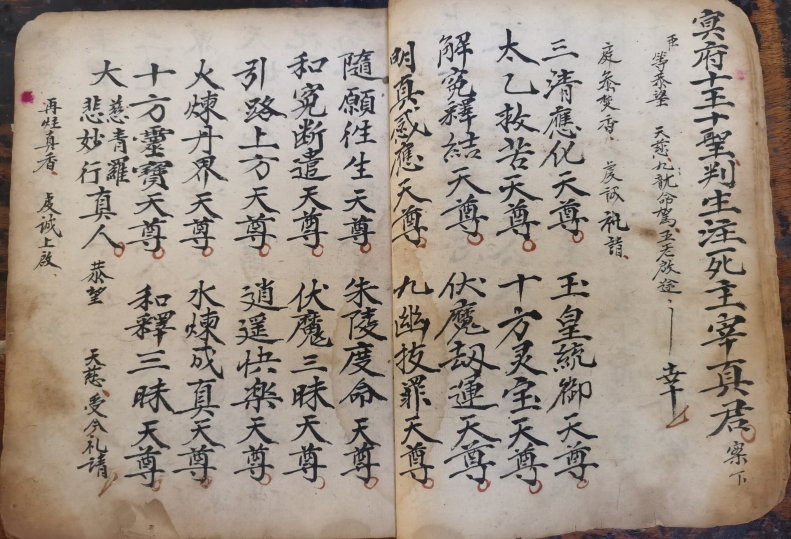 冥府十王十聖判生注死主宰真君 案下
臣 等恭望 天慈九龍命駕五老啟途 幸
庭叅焚香 虔誠礼請
三清應化天尊 玉皇統御天尊
太乙救苦天尊 十方灵宝天尊
解冤釋結天尊 伏魔劫運天尊
明真感應天尊 九幽拔罪天尊
隨願徃生天尊 朱陵度命天尊
和冤断遣天尊 伏魔三昧天尊
引路上方天尊 逍遥快楽天尊
火煉丹界天尊 水煉成真天尊
十方靈寶天尊 和釋三昧天尊
大慈青羅 悲妙行真人 恭望 天慈 受今礼請
再炷真香 虔誠上啟